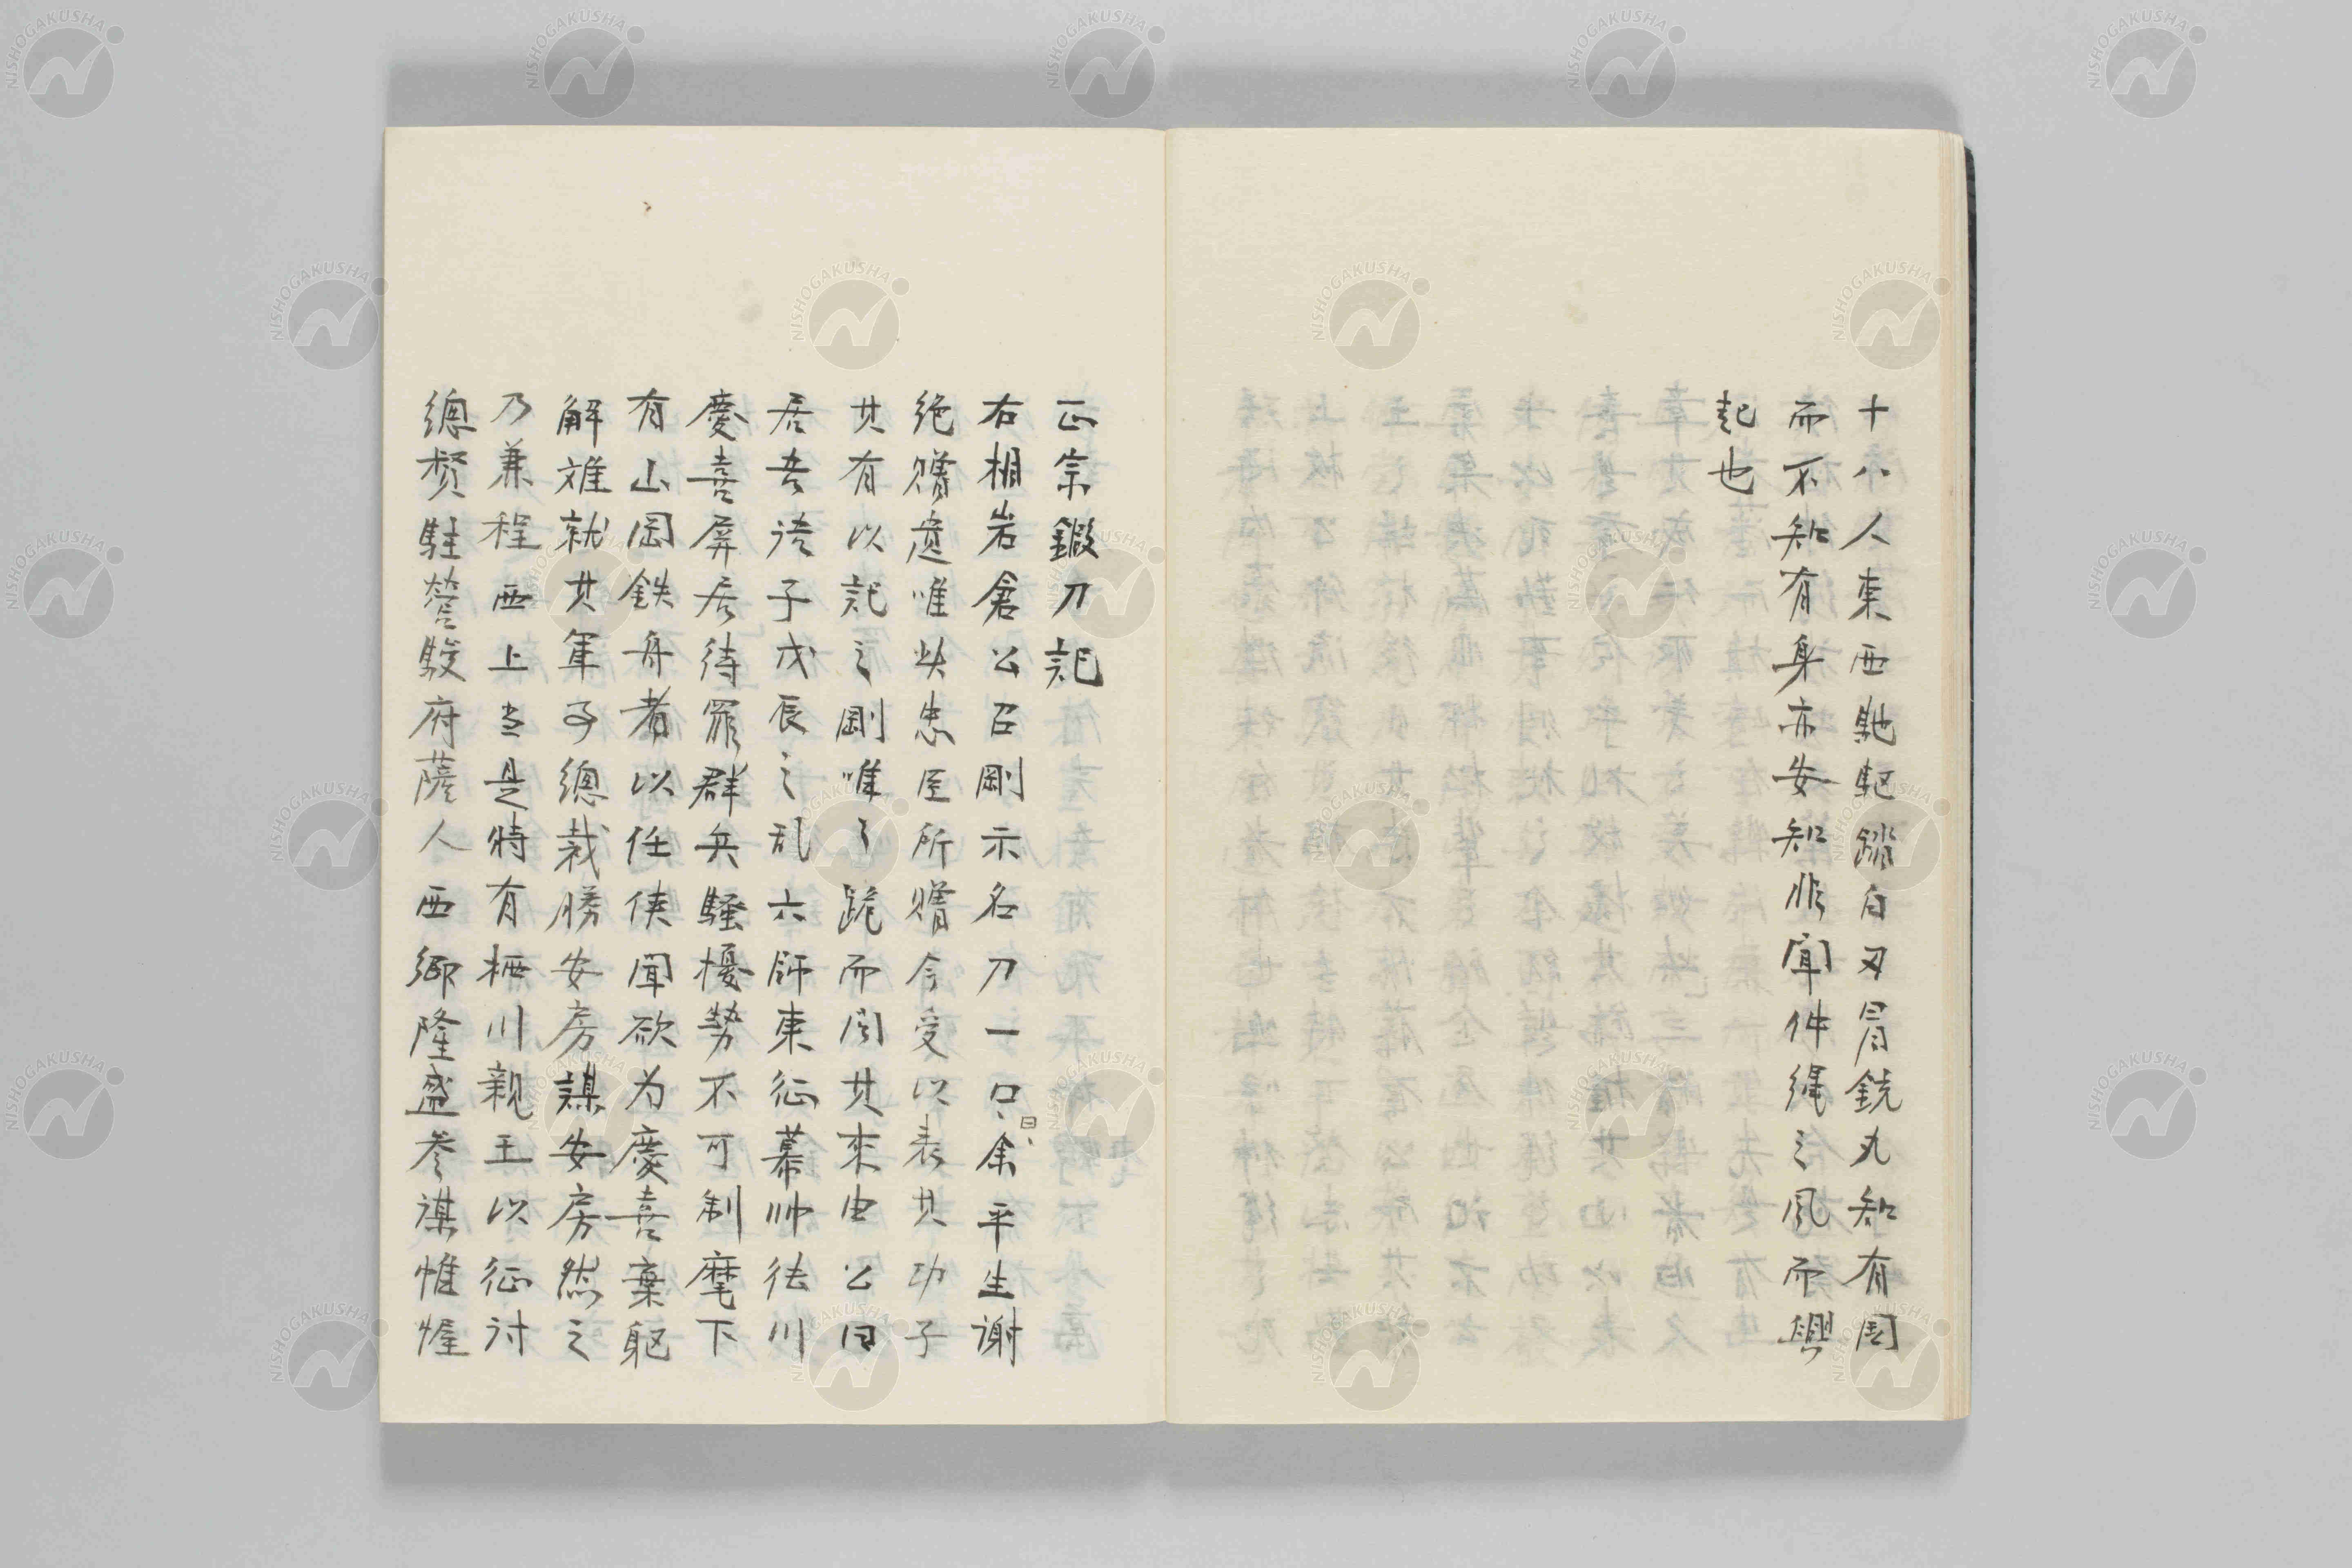 十八人東西馳駆蹈白刃冒銃丸知有国
而不知有身亦安知非聞仲縄之風而興
起也
正宗鍛刀記
右相岩倉公召剛示名刀一口、曰、余平生謝
絶贈遺唯此忠臣所贈今受以表其功子
其有以記之剛唯々跪而問其来由公曰
居吾語子戊辰之乱六師東征幕帥徳川
慶喜屏居待罪群兵騒擾勢不可制麾下
有山岡鉄舟者以任侠聞欲为慶喜棄躯
解難就其軍事總裁勝安房謀安房然之
乃兼程西上当是時有栖川親王以征討
總督駐營駿府薩人西郷隆盛参謀惟幄
NISHOGAKUSHA